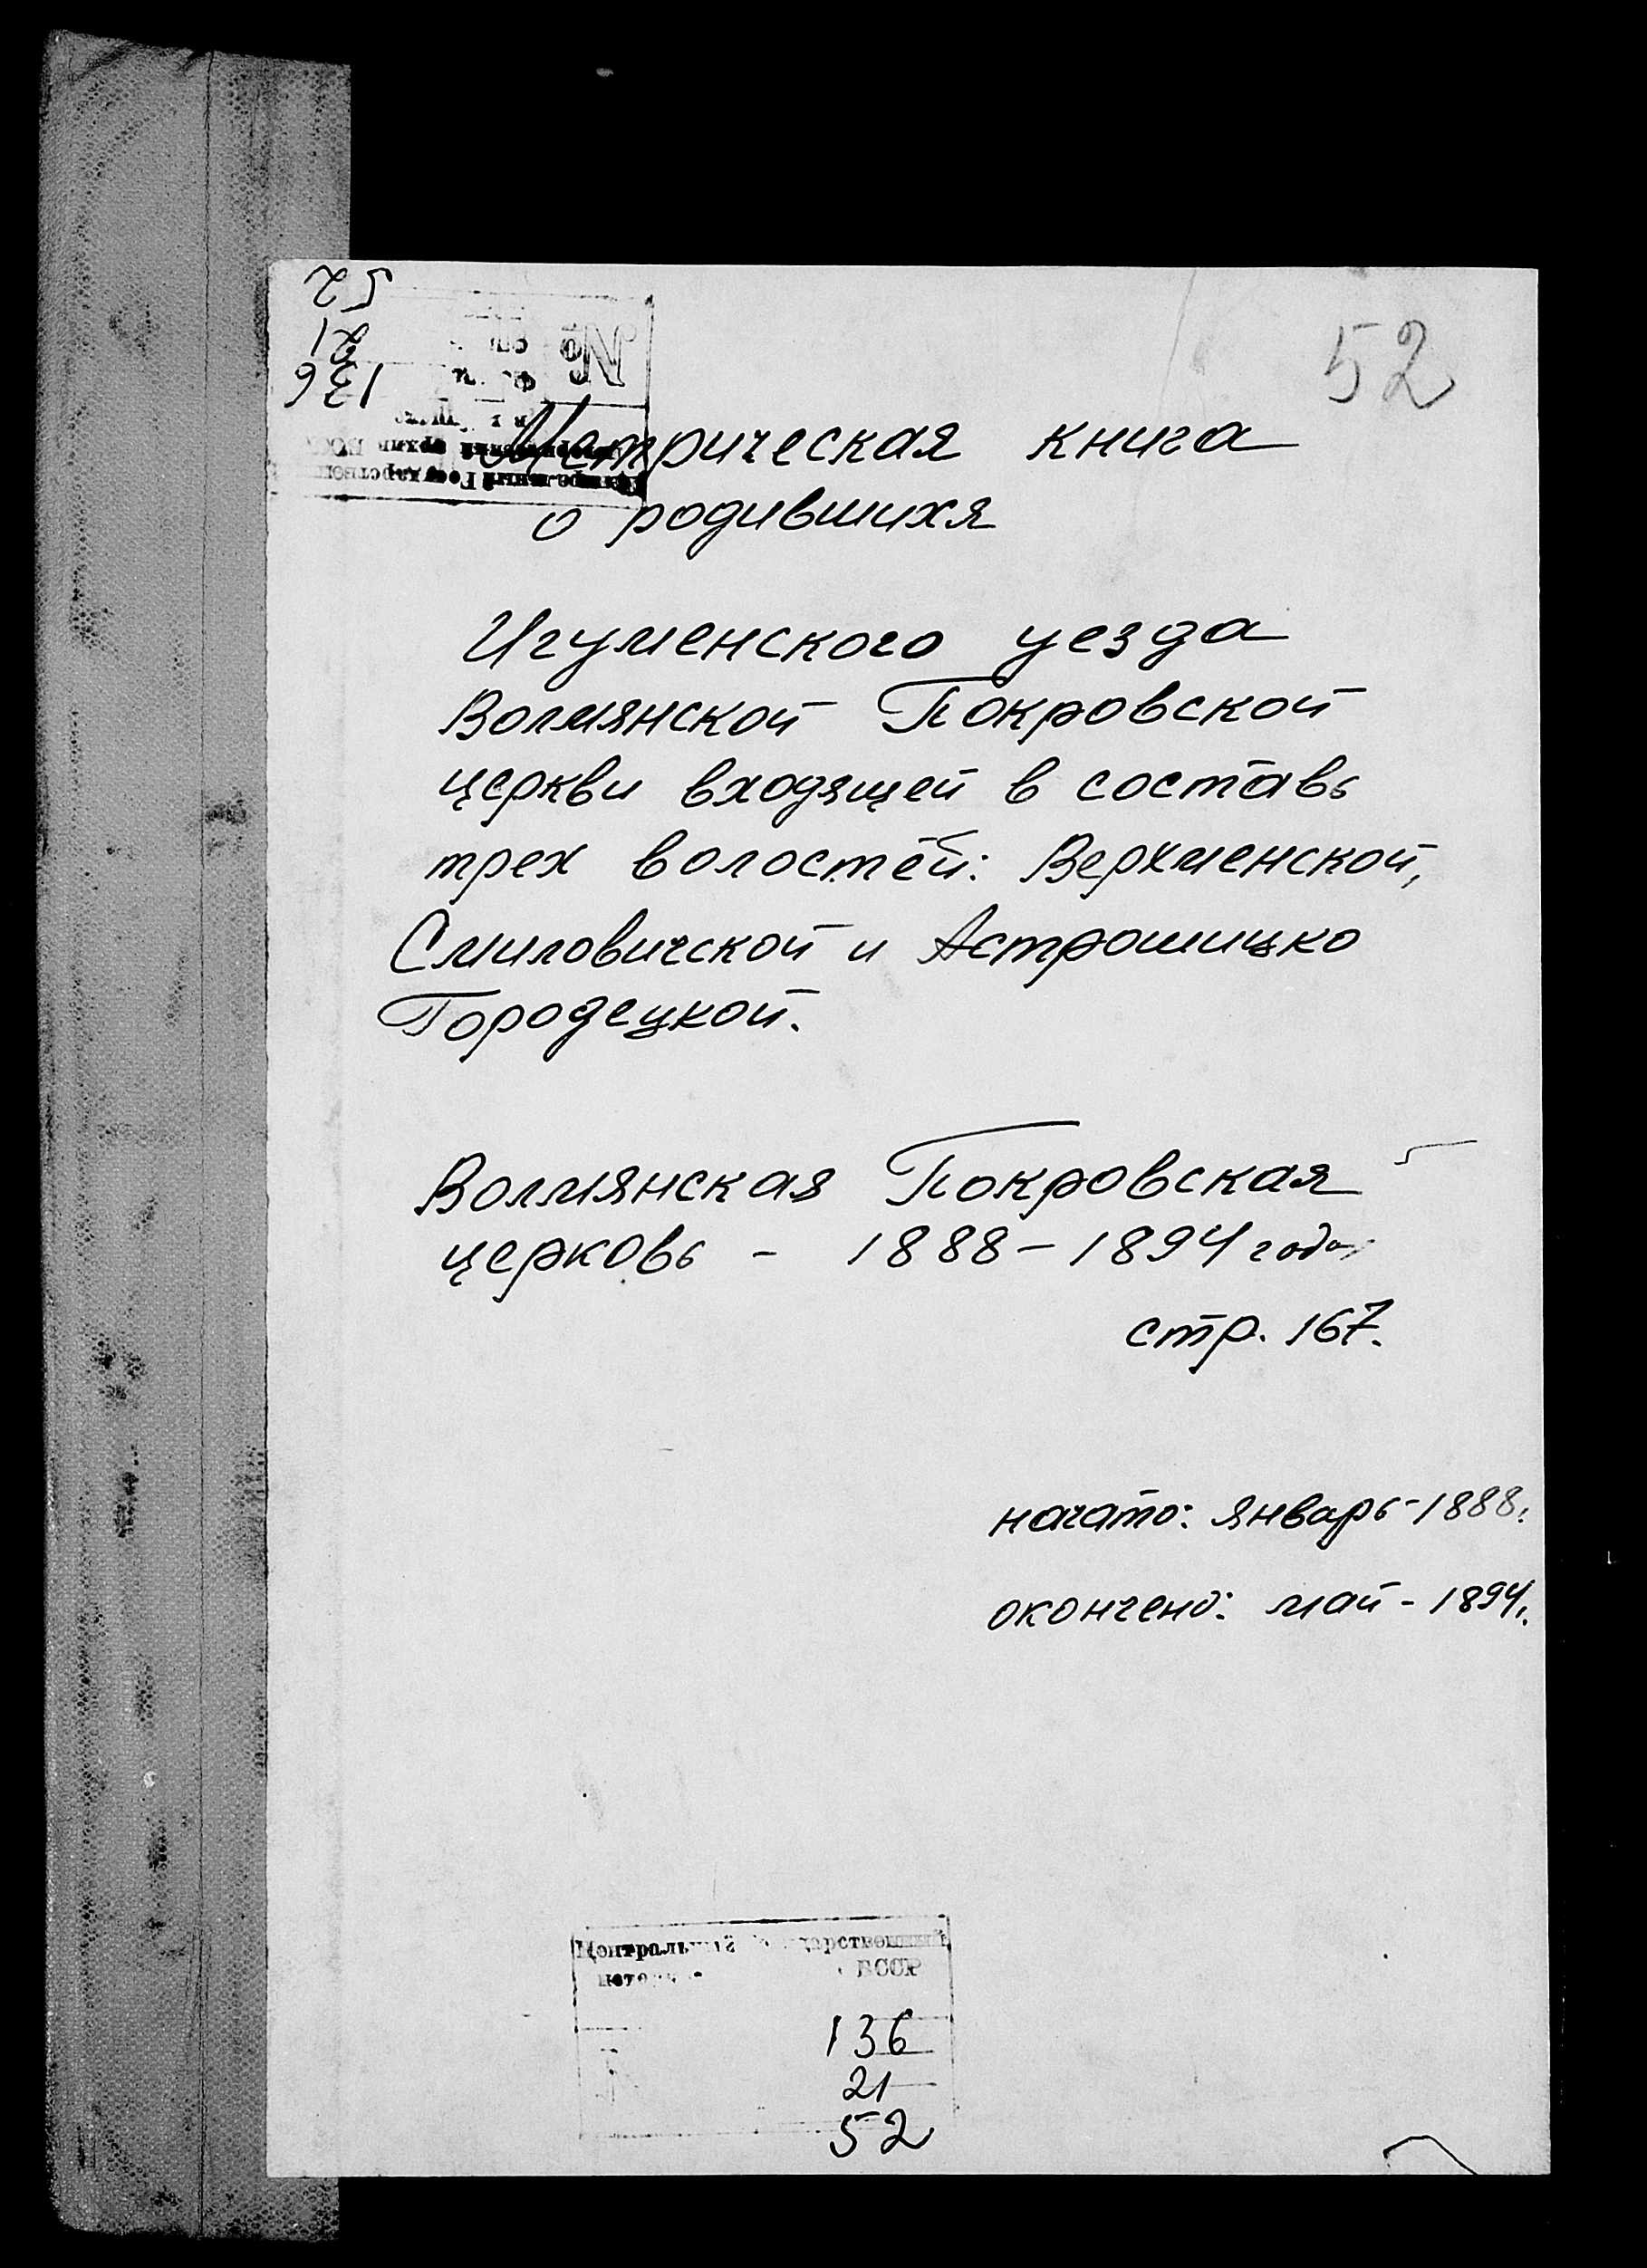 52
21
136
№
52
Метрическая книга
о родившихя
Игуменского уезда
Волмянской Покровской
церкви входящей в составь
трех волостей: Верхменской,
Смиловичской и Астрошицко
Городецкой.
Волмянская Покровская
церковь - 1888 - 1894 года
стр. 167.
начато: январь - 1888.
окончено: май - 1894.
Центральный Государственный
БССР
136
21
52